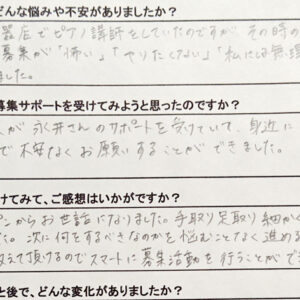 どんな悩みや不安がありましたか？
器店でピアノ講師をしていたのですが、その時の
募集が「怖い」「やりたくない」「私には無理
ました。
募集サポートを受けてみようと思ったのですか？
が 永井さんのサポートを受けていて、身近に
で不安なくお願いすることができました。
けてみて、ご感想はいかがですか？
からお世話になりました。手取り足取り細かく
た。次に何をするべきなのかを悩むことなく進める
教えて頂けるのでスマートに募集活動を行うことがで
と後で、どんな変化がありましたか？